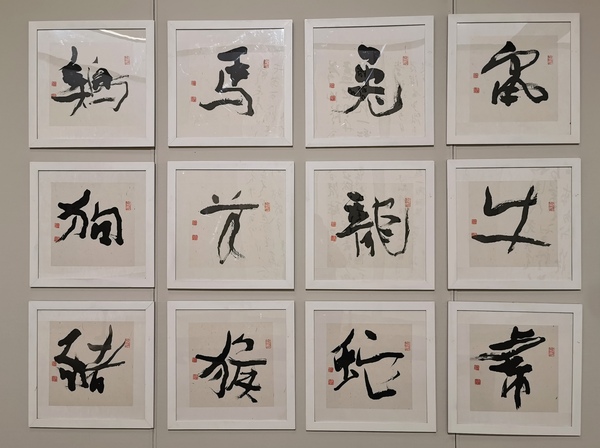 鼠
牛
虎
兔
龍
蛇
馬
羊
猴
鷄
狗
豬